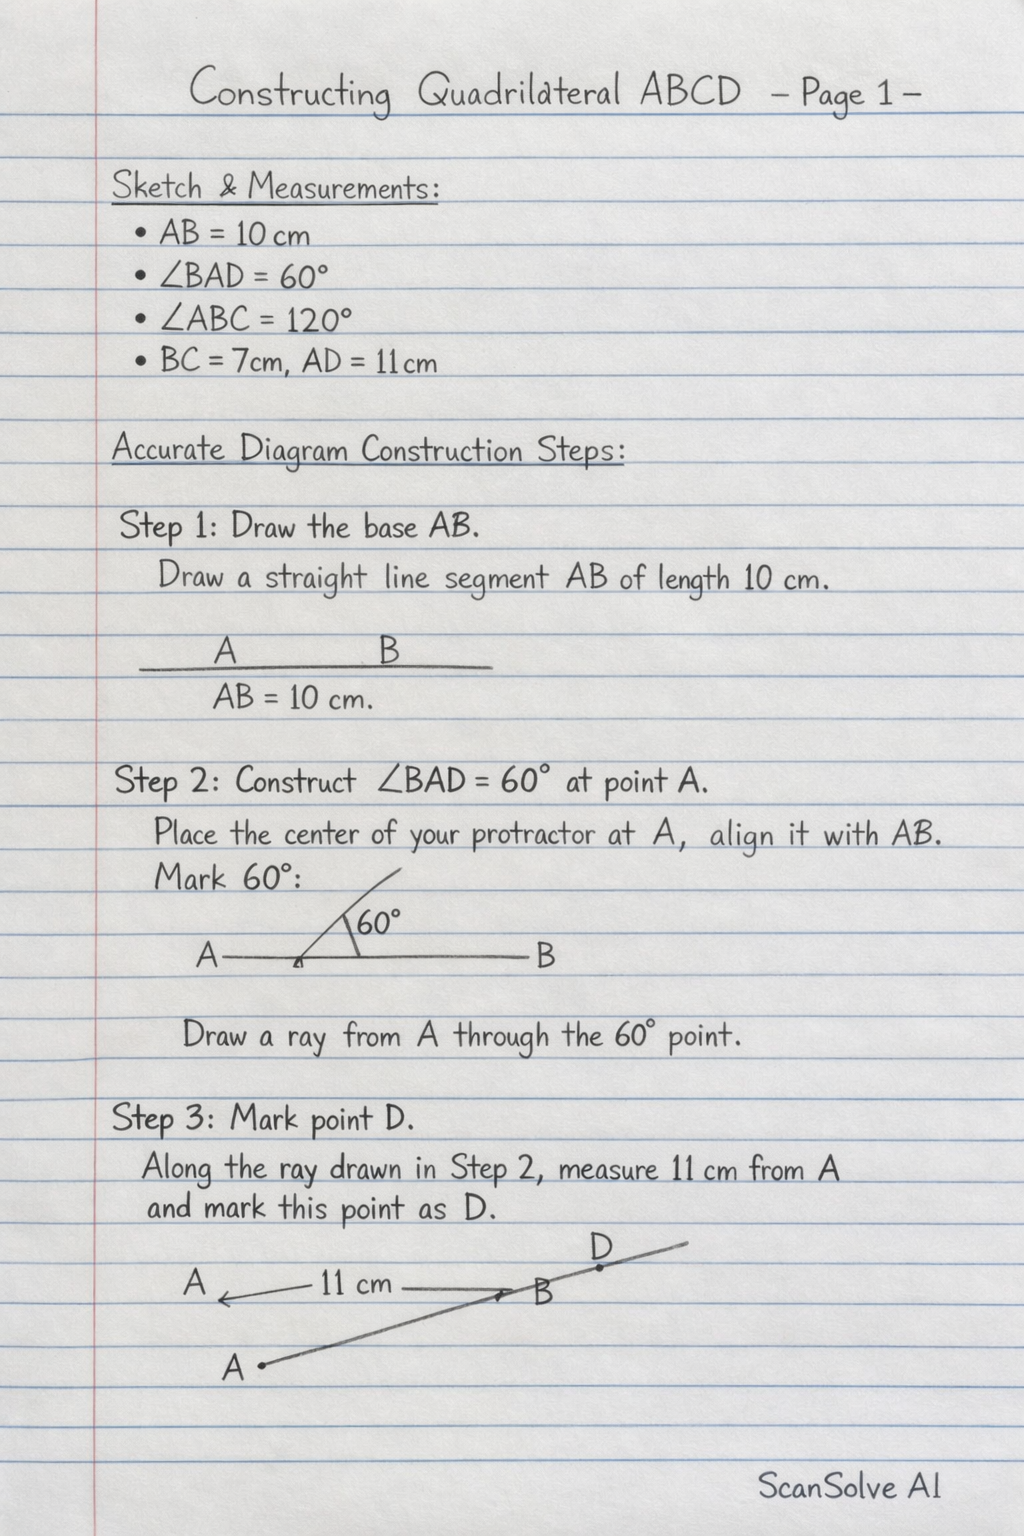 Constructing Quadrilateral ABCD – Page 1 –
Sketch & Measurements:
• AB = 10 cm
• ∠BAD = 60°
• ∠ABC = 120°
• BC = 7cm, AD = 11cm
Accurate Diagram Construction Steps:
Step 1: Draw the base AB.
Draw a straight line segment AB of length 10 cm.
A B
AB = 10 cm.
Step 2: Construct ∠BAD = 60° at point A.
Place the center of your protractor at A, align it with AB.
Mark 60°:
60°
A B
Draw a ray from A through the 60° point.
Step 3: Mark point D.
Along the ray drawn in Step 2, measure 11 cm from A
and mark this point as D.
D
A 11 cm B
A
ScanSolve AI